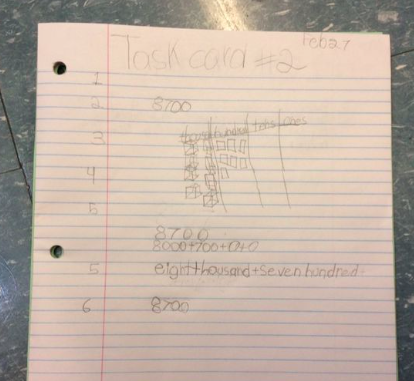 Feb 27
Task card #2
1
2 8700
3 thousand hundred tens ones
4
5
8700
8000+700+0+0
5 eight thousand+seven hundred
6 8700